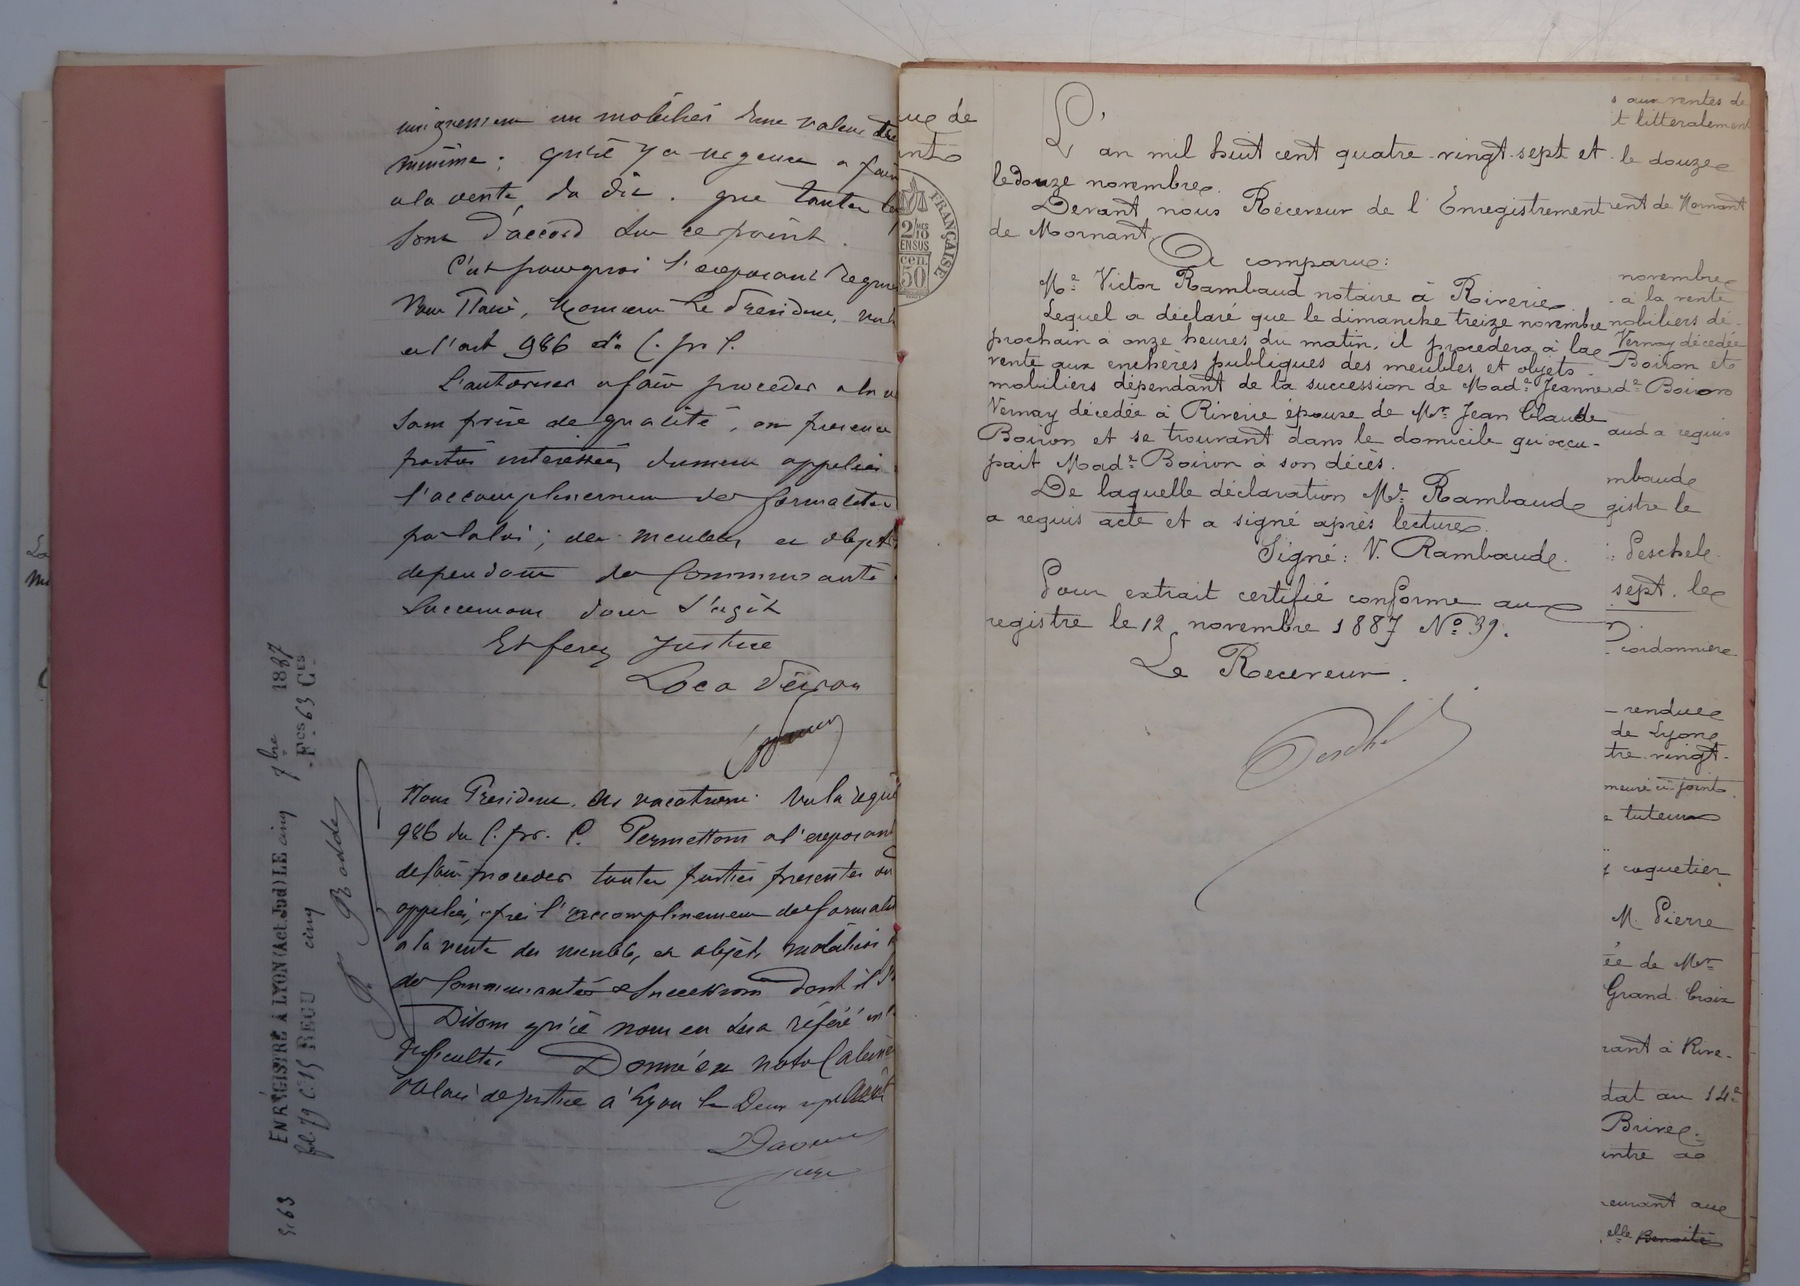 un mobilier d'une valeur
minime; qu'il y a urgence a
a la vente du dit. que toutes
sont d'accord sur ce point.
C'est pourquoi l'exposant
Vous Plaise, Monsieur Le Président,
et l'art 986 du C. pr C.
L'autoriser a faire procéder a la
sans prise de qualité, en présence
parties intéressées dument appelées
l'accomplissement des formalités
par la loi; des meubles et objets
dépendant des Communauté
Successions dont s'agit
Et ferez Justice
Nous Président des vacations. Vu la
986 du C. pr. C. Permettons a l'exposant
de faire procéder toutes parties présentes ou
appelées, après l'accomplissement des
a la vente des meubles et objets mobiliers
des Communautés & Successions dont il
Disons qu'il nous en sera référé
difficultés Donné en
Palais de justice à Lyon le Deux
juge
ENREGISTRÉ À LYON (Act. Jud) LE cinq 7bre 1887
fol. 79 C. 15 REÇU cinq Fcs 63 Cts
5,63
que de
FRANÇAISE
2/10
EN SUS
50
cen
L'
an mil huit cent quatre-vingt-sept et
le douze novembre.
Devant nous Receveur de l'Enregistrement
de Mornant.
A comparu:
Me Victor Rambaud notaire à Riverie
Lequel a déclaré que le dimanche treize novembre
prochain à onze heures du matin, il procedera à la
vente aux enchères publiques des meubles et objets
mobiliers dépendant de la succession de Made Jeanne
Vernay décedée à Riverie épouse de Mr Jean Claude
Boiron et se trouvant dans le domicile qu'occu-
pait Made Boiron à son décès.
De laquelle déclaration Me Rambaud
a requis acte et a signé après lecture.
Signé: V. Rambaud.
Pour extrait certifié conforme au
registre le 12 novembre 1887 No 39.
Le Receveur.
s aux ventes de
t littéralement
le douze
ent de Mornant
novembre
à la vente
mobiliers dé-
Vernay décedée
Boiron et
de Boiron
aud a requis
mbaud
gistre le
: Peschel.
sept. le
cordonnier
rendue
de Lyon
tre vingt-
meure ci-joint.
tuteur
coquetier
M. Pierre
ée de Mr
Grand Croix
rant à Rive-
dat au 14e
Brive.
intre de
eurant au
elle Benoîte